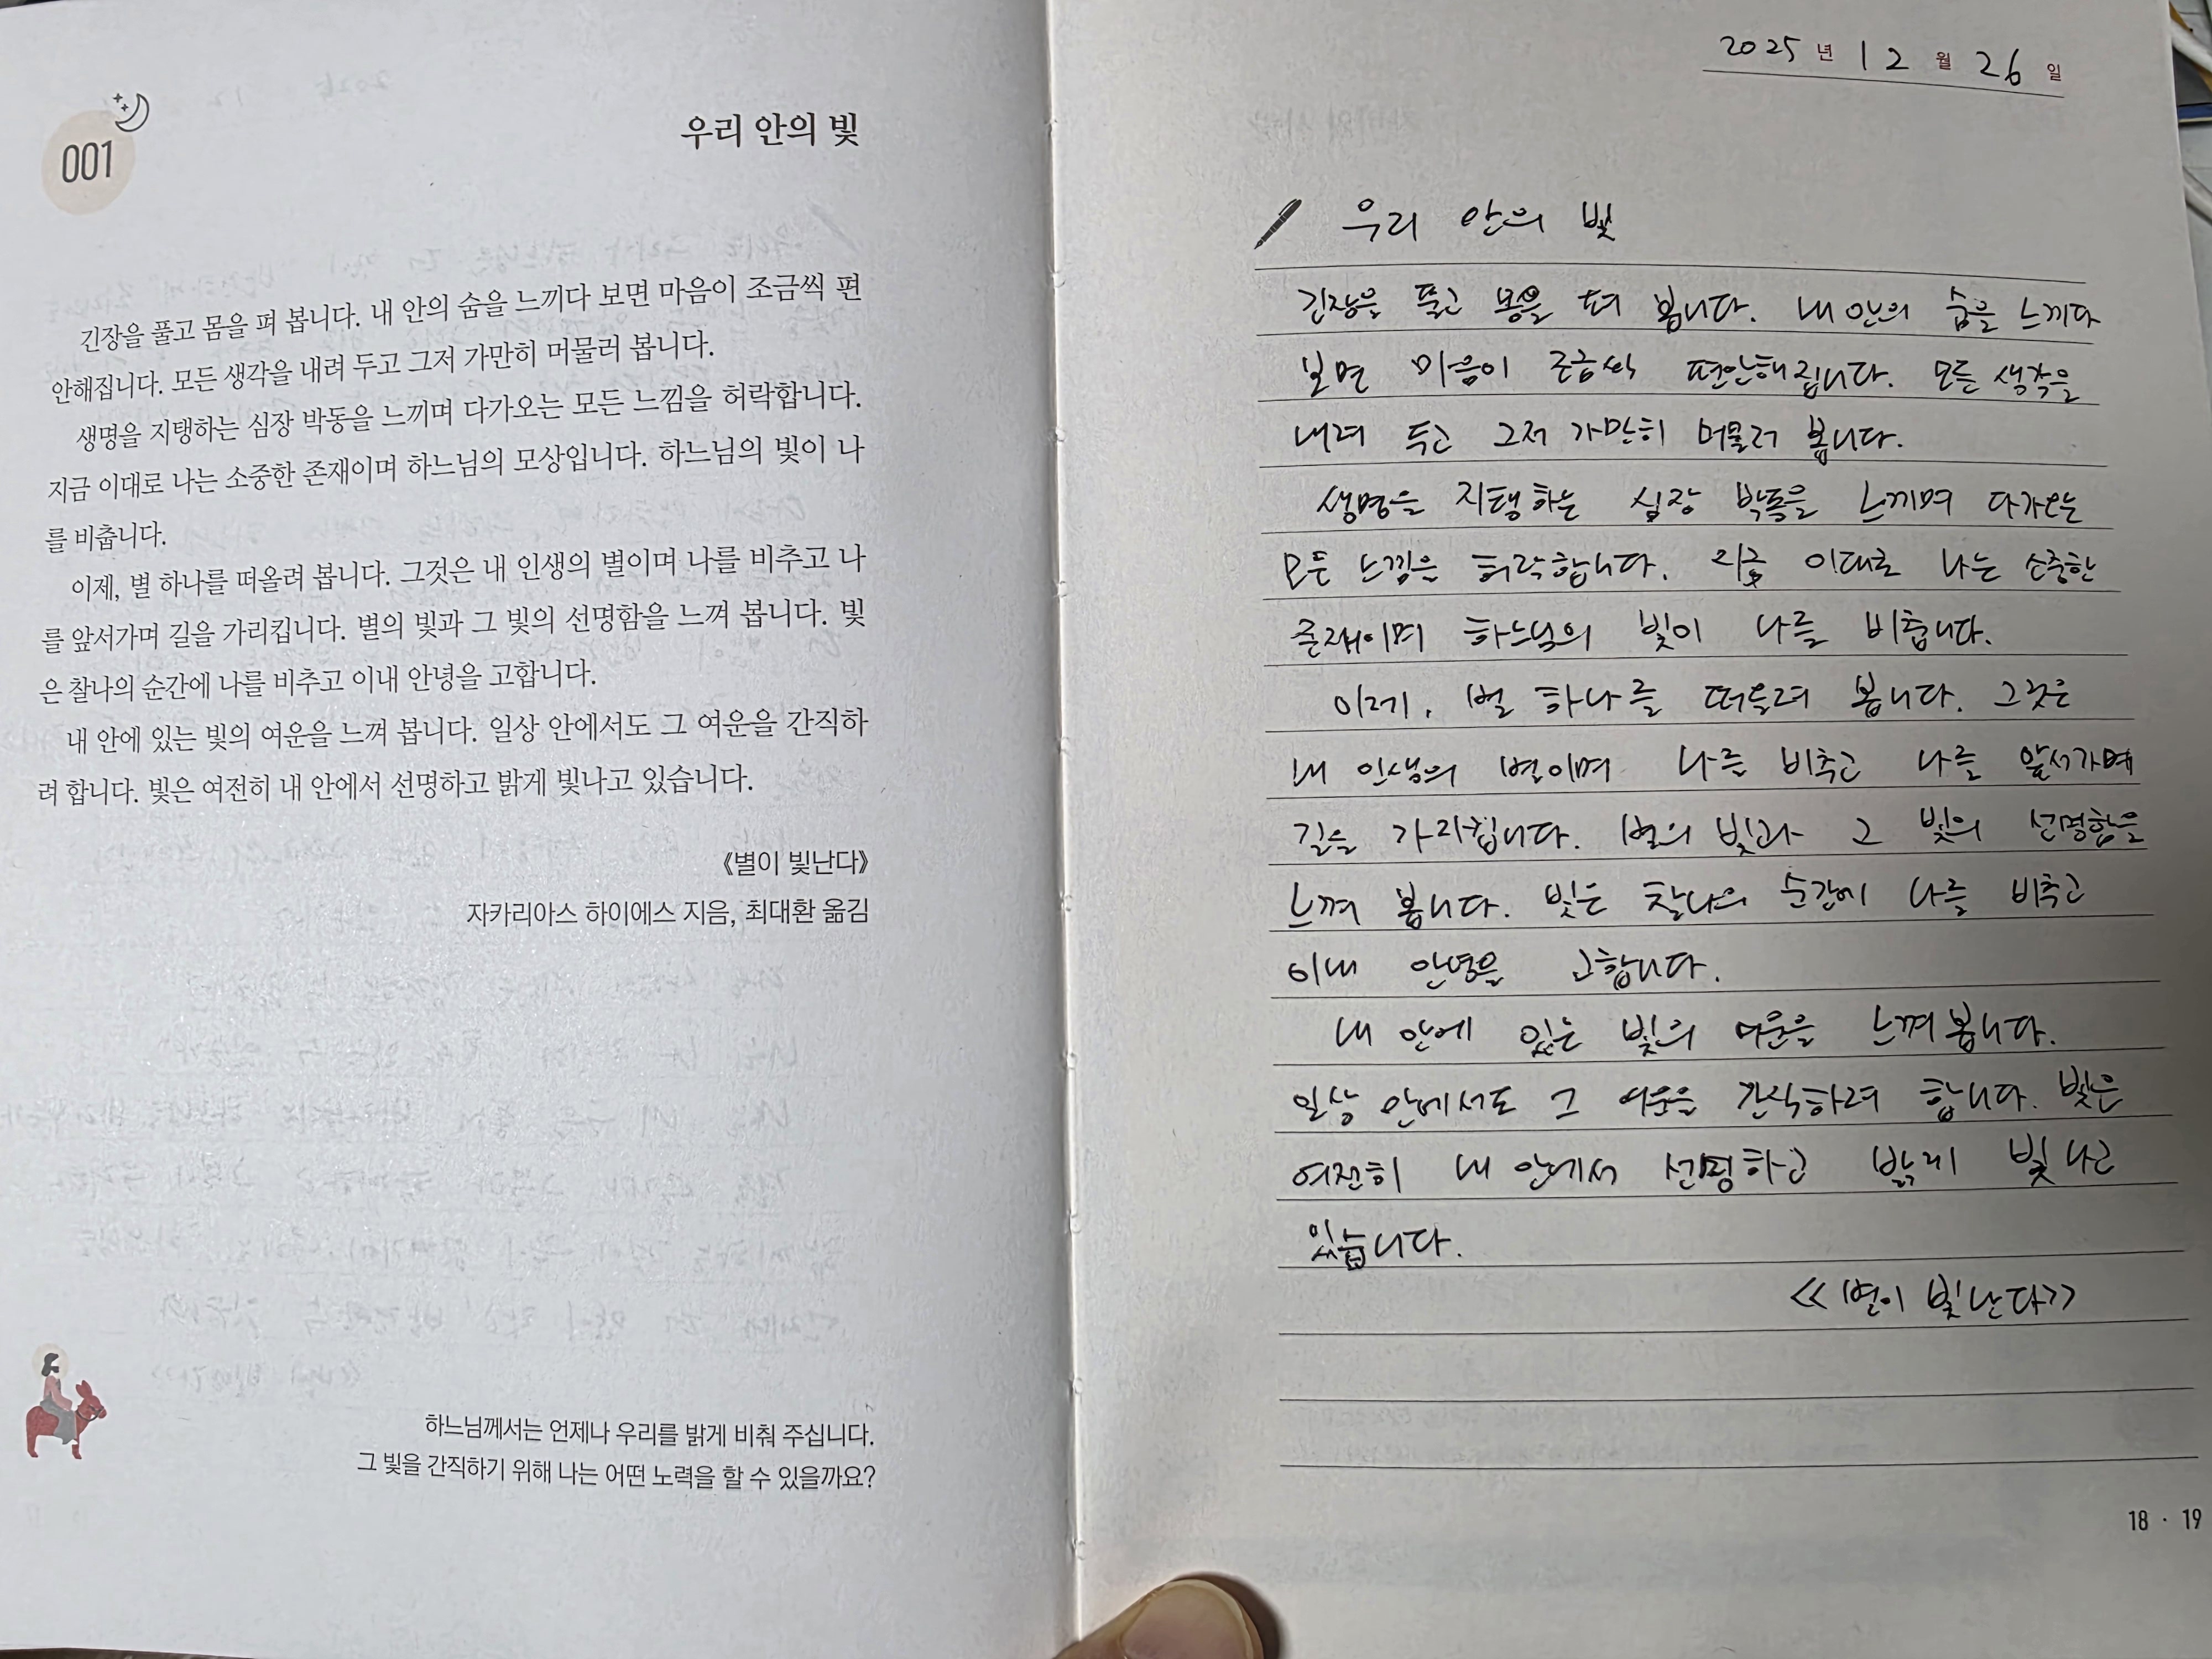 001
우리 안의 빛
긴장을 풀고 몸을 펴 봅니다. 내 안의 숨을 느끼다 보면 마음이 조금씩 편
안해집니다. 모든 생각을 내려 두고 그저 가만히 머물러 봅니다.
생명을 지탱하는 심장 박동을 느끼며 다가오는 모든 느낌을 허락합니다.
지금 이대로 나는 소중한 존재이며 하느님의 모상입니다. 하느님의 빛이 나
를 비춥니다.
이제, 별 하나를 떠올려 봅니다. 그것은 내 인생의 별이며 나를 비추고 나
를 앞서가며 길을 가리킵니다. 별의 빛과 그 빛의 선명함을 느껴 봅니다. 빛
은 찰나의 순간에 나를 비추고 이내 안녕을 고합니다.
내 안에 있는 빛의 여운을 느껴 봅니다. 일상 안에서도 그 여운을 간직하
려 합니다. 빛은 여전히 내 안에서 선명하고 밝게 빛나고 있습니다.
《별이 빛난다》
자카리아스 하이에스 지음, 최대환 옮김
하느님께서는 언제나 우리를 밝게 비춰 주십니다.
그 빛을 간직하기 위해 나는 어떤 노력을 할 수 있을까요?
2025년 12월 26일
우리 안의 빛
긴장을 풀고 몸을 펴 봅니다. 내 안의 숨을 느끼다
보면 마음이 조금씩 편안해집니다. 모든 생각을
내려 두고 그저 가만히 머물러 봅니다.
생명을 지탱하는 심장 박동을 느끼며 다가오는
모든 느낌은 허락합니다. 지금 이대로 나는 소중한
존재이며 하느님의 빛이 나를 비춥니다.
이제, 별 하나를 떠올려 봅니다. 그것은
내 인생의 별이며 나를 비추고 나를 앞서가며
길을 가리킵니다. 별의 빛과 그 빛의 선명함을
느껴 봅니다. 빛은 찰나의 순간에 나를 비추고
이내 안녕을 고합니다.
내 안에 있는 빛의 여운을 느껴 봅니다.
일상 안에서도 그 여운을 간직하려 합니다. 빛은
여전히 내 안에서 선명하고 밝게 빛나고
있습니다.
<<별이 빛난다>>
18 · 19